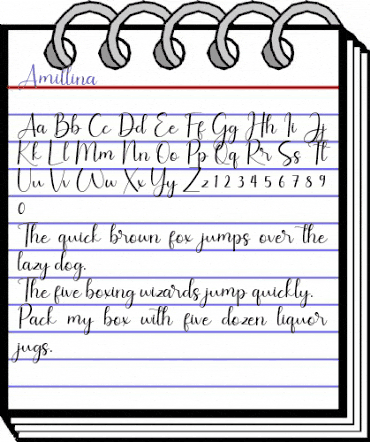 Amillina
Aa Bb Cc Dd Ee Ff Gg Hh Ii Jj
Kk Ll Mm Nn Oo Pp Qq Rr Ss Tt
Uu Vv Ww Xx Yy Zz 1 2 3 4 5 6 7 8 9
0
The quick brown fox jumps over the
lazy dog.
The five boxing wizards jump quickly.
Pack my box with five dozen liquor
jugs.